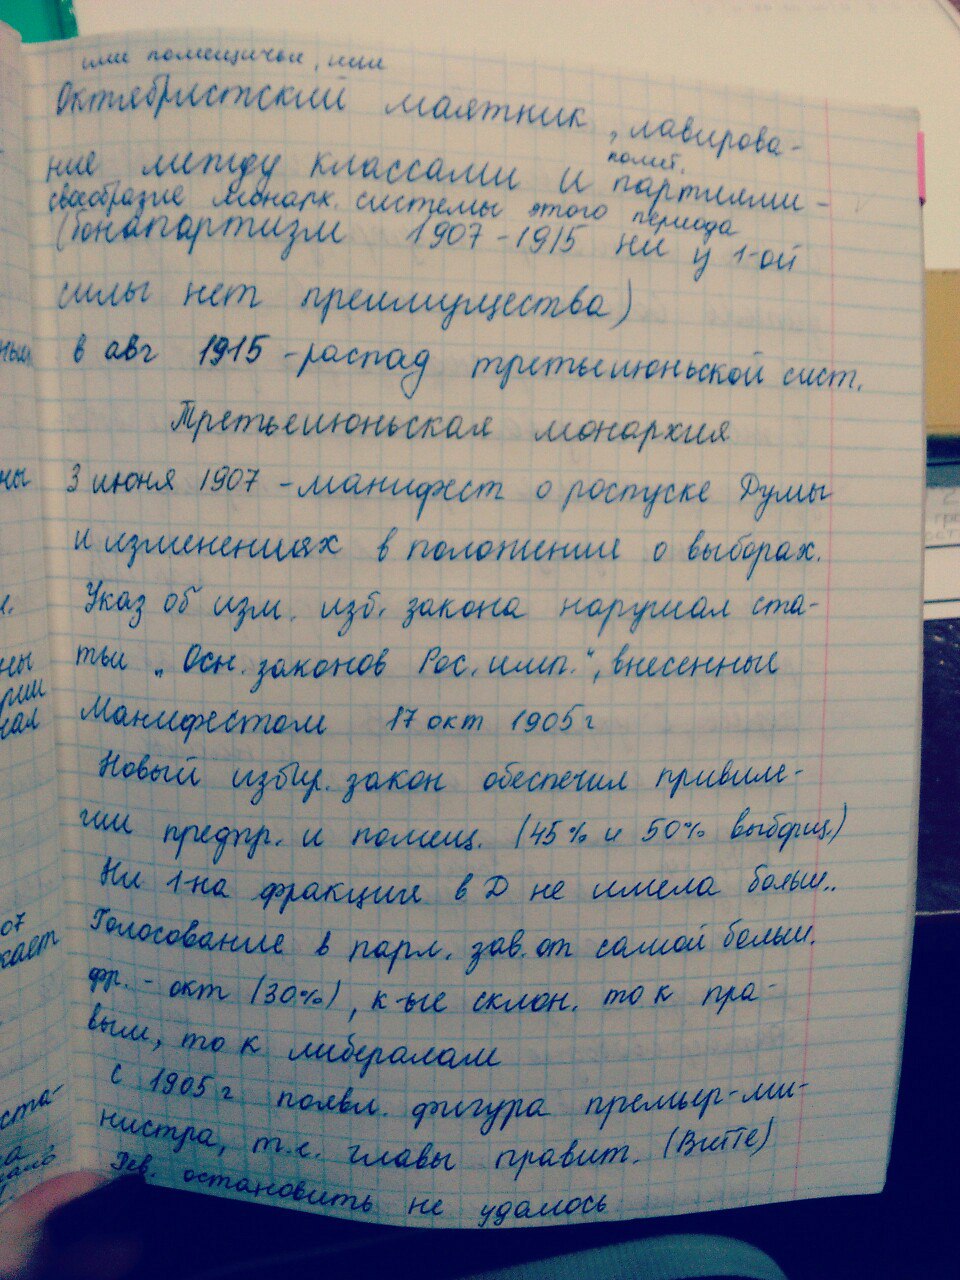 или помещичьи, или
Октябристский маятник, лавирова-
ние между классами и партиями -
полит.
своеобразие монарх. системы этого периода
(бонапартизм 1907-1915 ни у 1-ой
силы нет преимущества)
в авг 1915 - распад третьеиюньской сист.
Третьеиюньская монархия
3 июня 1907 - манифест о роспуске Думы
и изменениях в положение о выборах.
Указ об изм. изб. закона нарушал ста-
тьи „Осн. законов Рос. имп.", внесенные
Манифестом 17 окт 1905 г
Новый избир. закон обеспечил привиле-
гии предпр. и помещ. (45% и 50% выборщ.)
Ни 1-на фракция в Д не имела больш..
Голосование в парл. зав. от самой больш.
фр. - окт (30%), к-ые склон. то к пра-
вым, то к либералам
с 1905 г появл. фигура премьер-ми-
нистра, т.е. главы правит. (Витте)
Рев. остановить не удалось
ны
ны
рии
07
кает
ста-